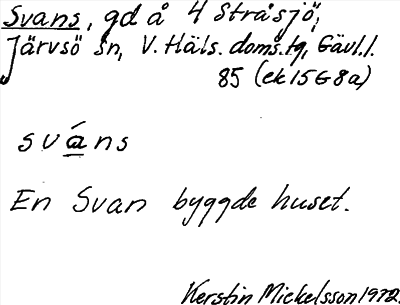 Svans, gd å 4 Stråsjö,
Järvsö sn, V. Häls. doms.tg, Gävl.l.
85 (ek 15G8a)
sváns
En Svan byggde huset.
Kerstin Mickelsson 1972.